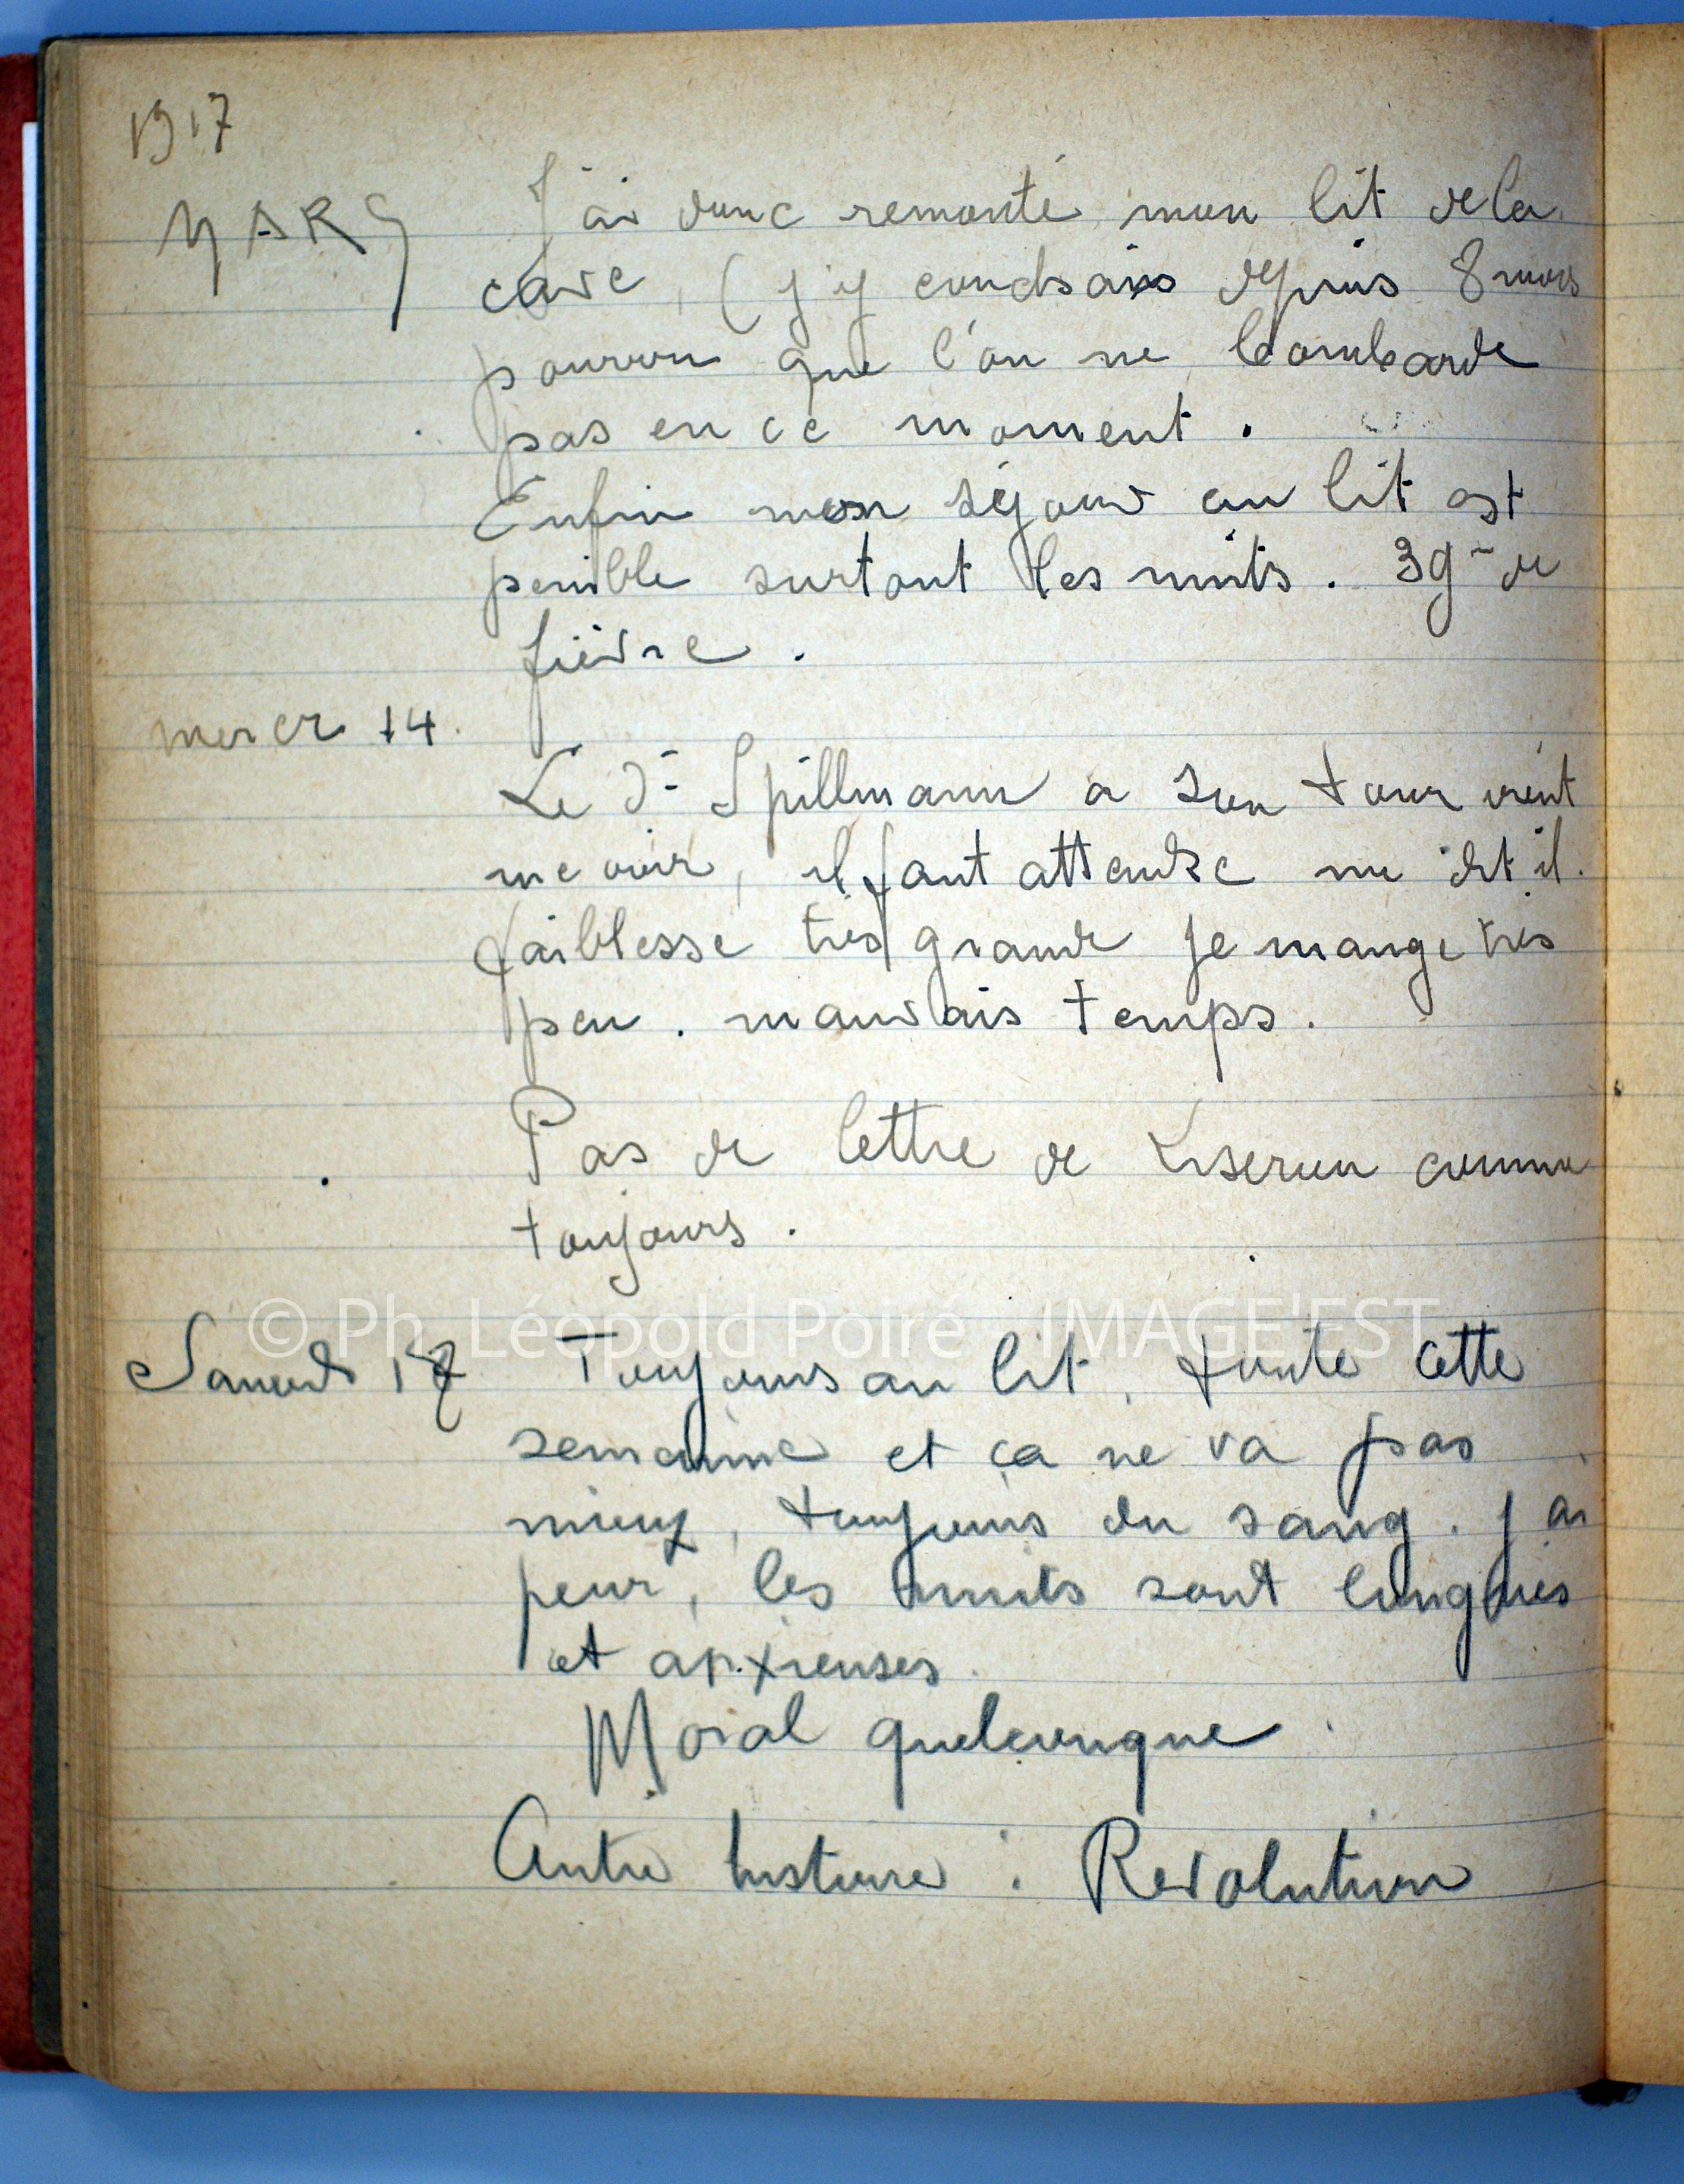 1917
MARS
J'ai donc remonté mon lit de la
cave, (j'y couchais depuis 8 mois
pourvu que l'on ne bombarde
pas en ce moment.
Enfin mon séjour au lit est
penible surtout les nuits. 39° de
fièvre.
mercr 14.
Le Dr Spillmann a son tour vient
me voir, il faut attendre me dit il.
faiblesse très grande je mange très
peu. mauvais temps.
Pas de lettre de Liseron comme
toujours.
© Ph. Léopold Poiré - IMAGE'EST
Samedi 17
Toujours au lit, toute cette
semaine et ça ne va pas
mieux, toujours du sang. j'ai
peur, les nuits sont longues
et anxieuses.
Moral quelconque.
Autre histoire : Revolution